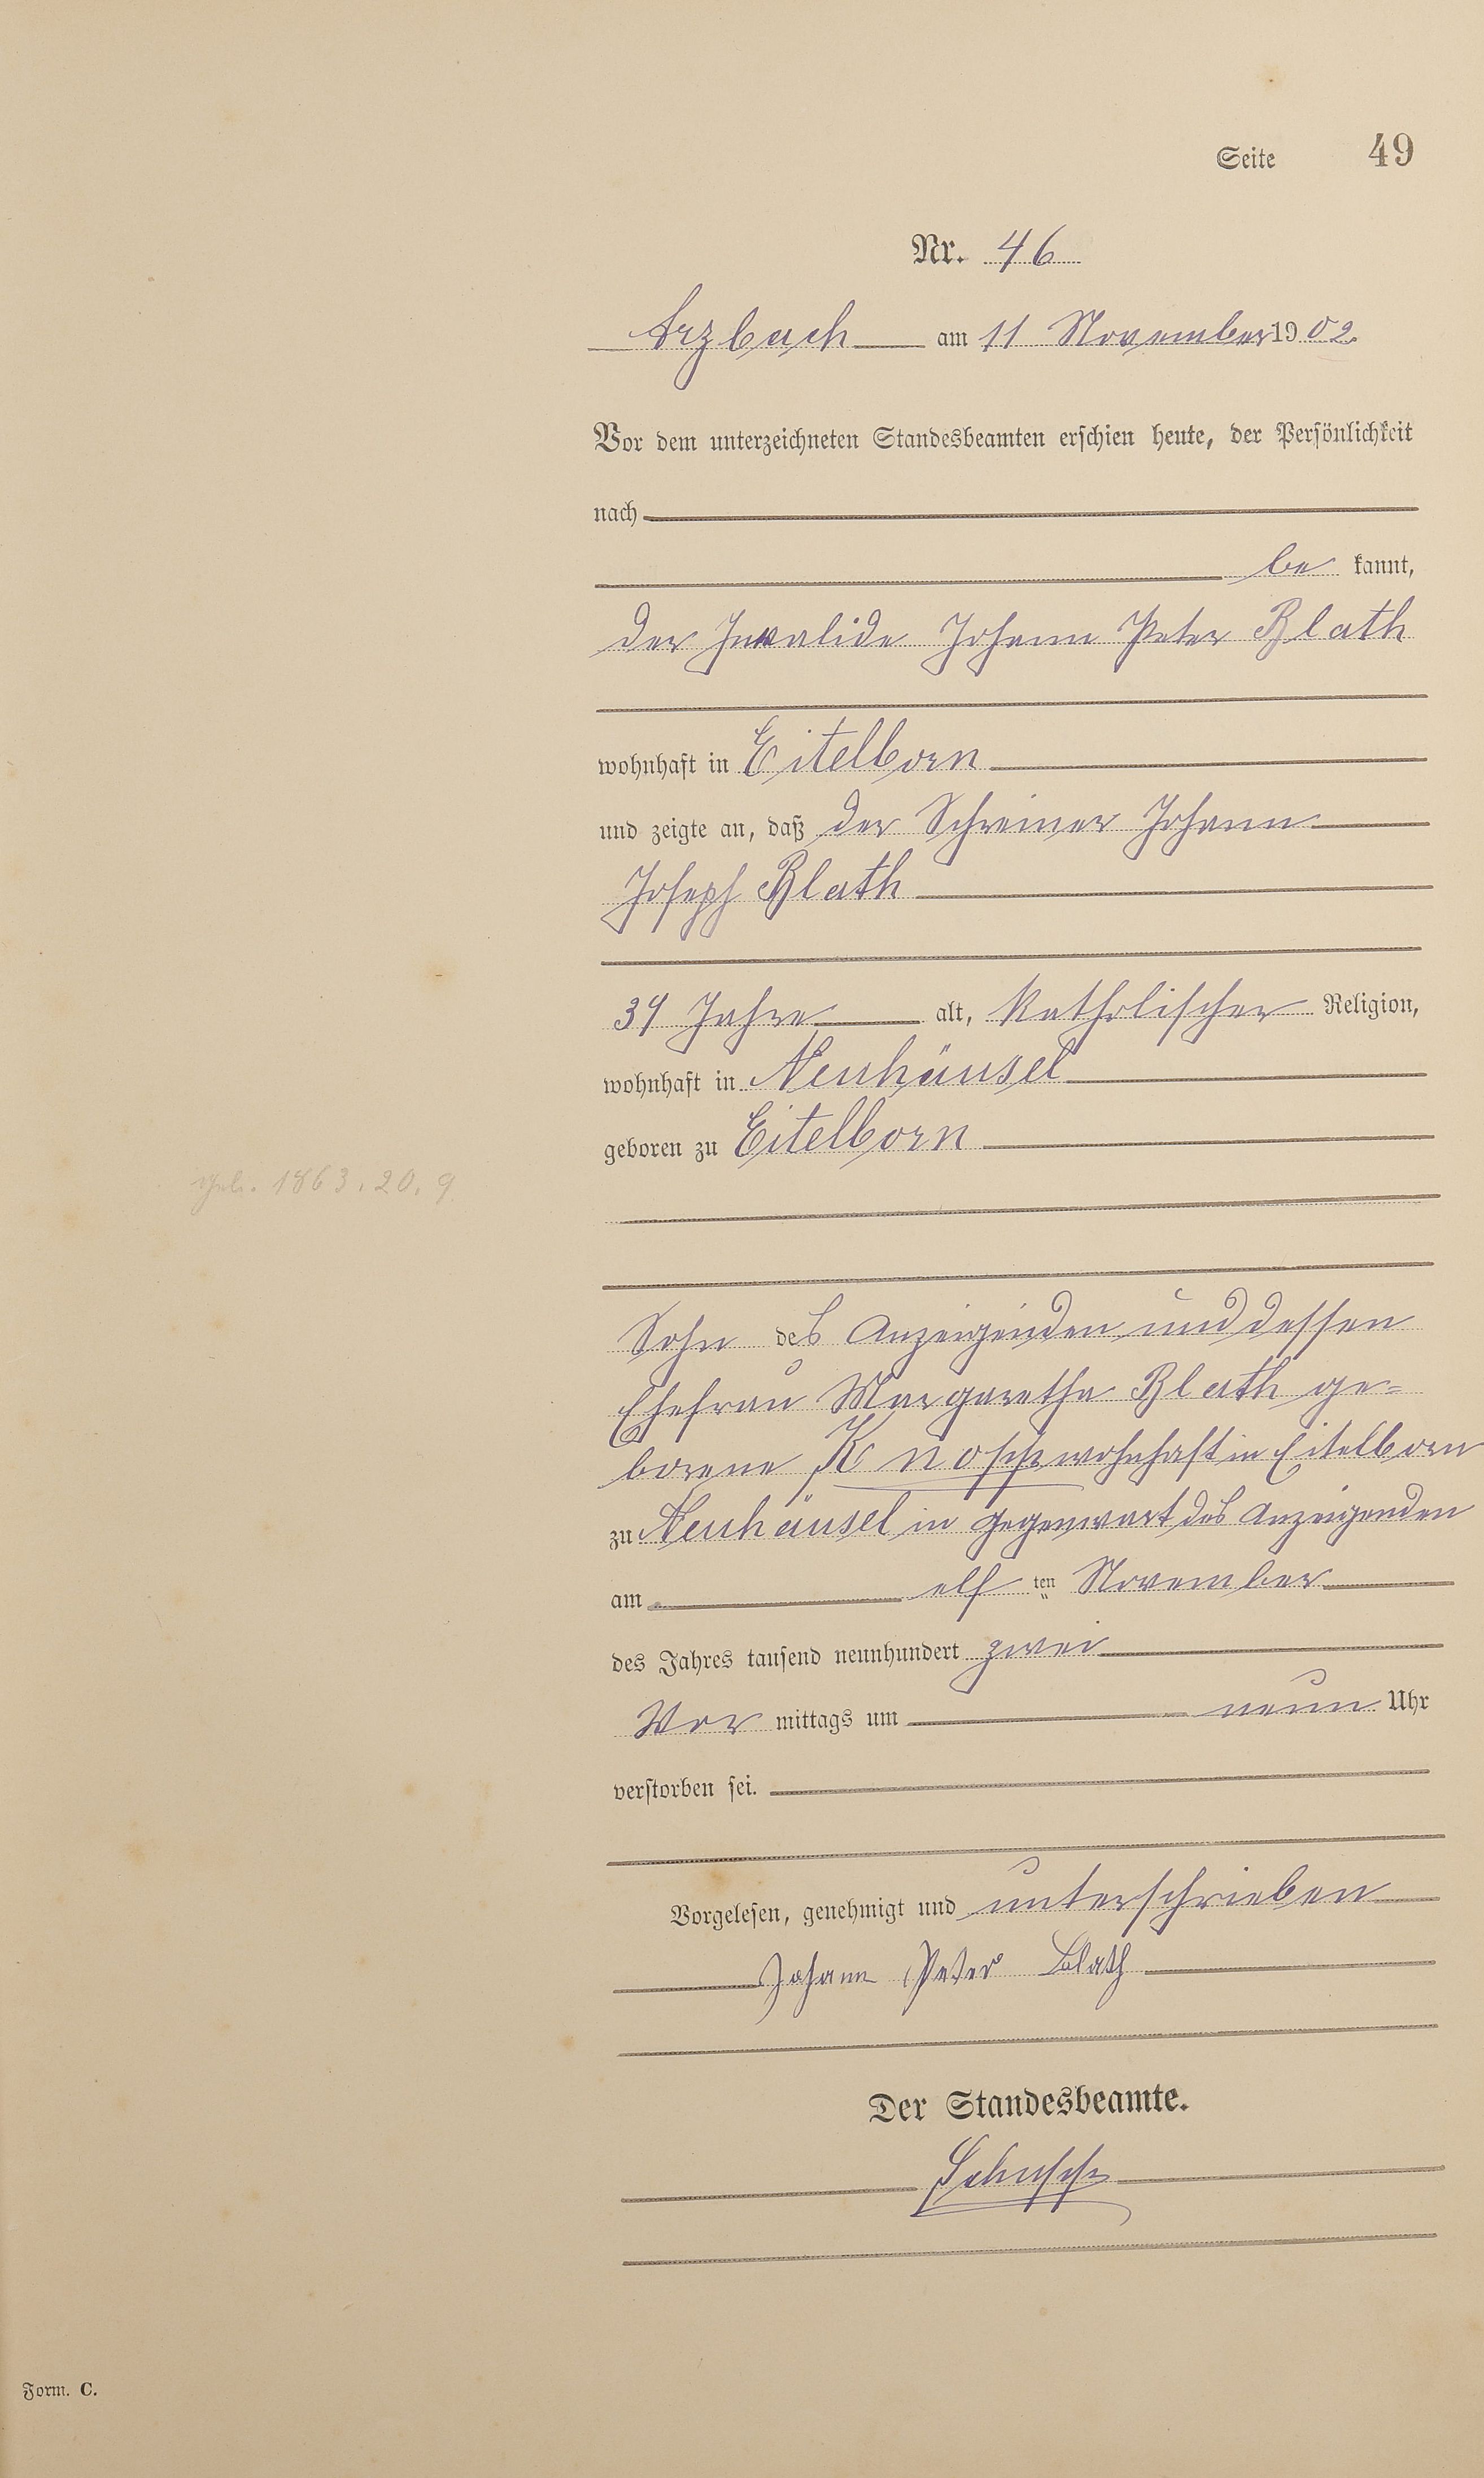 Seite 49
Nr. 46
Arzbach am 11 November 1902.
Vor dem unterzeichneten Standesbeamten erschien heute, der Persönlichkeit
nach
be kannt,
der Invalide Johann Peter Blath
wohnhaft in Eitelborn
und zeigte an, daß der Schreiner Johann
Joseph Blath
39 Jahre alt, katholischer Religion,
wohnhaft in Neuhäusel
geboren zu Eitelborn
geb. 1863. 20. 9.
Sohn des Anzeigenden und dessen
Ehefrau Margaretha Blath ge=
borene Knopp wohnhaft in Eitelborn
zu Neuhäusel in Gegenwart des Anzeigenden
am elf ten November
des Jahres tausend neunhundert zwei
Vor mittags um neun Uhr
verstorben sei.
Vorgelesen, genehmigt und unterschrieben
Johann Peter Blath
Der Standesbeamte.
Form. C.